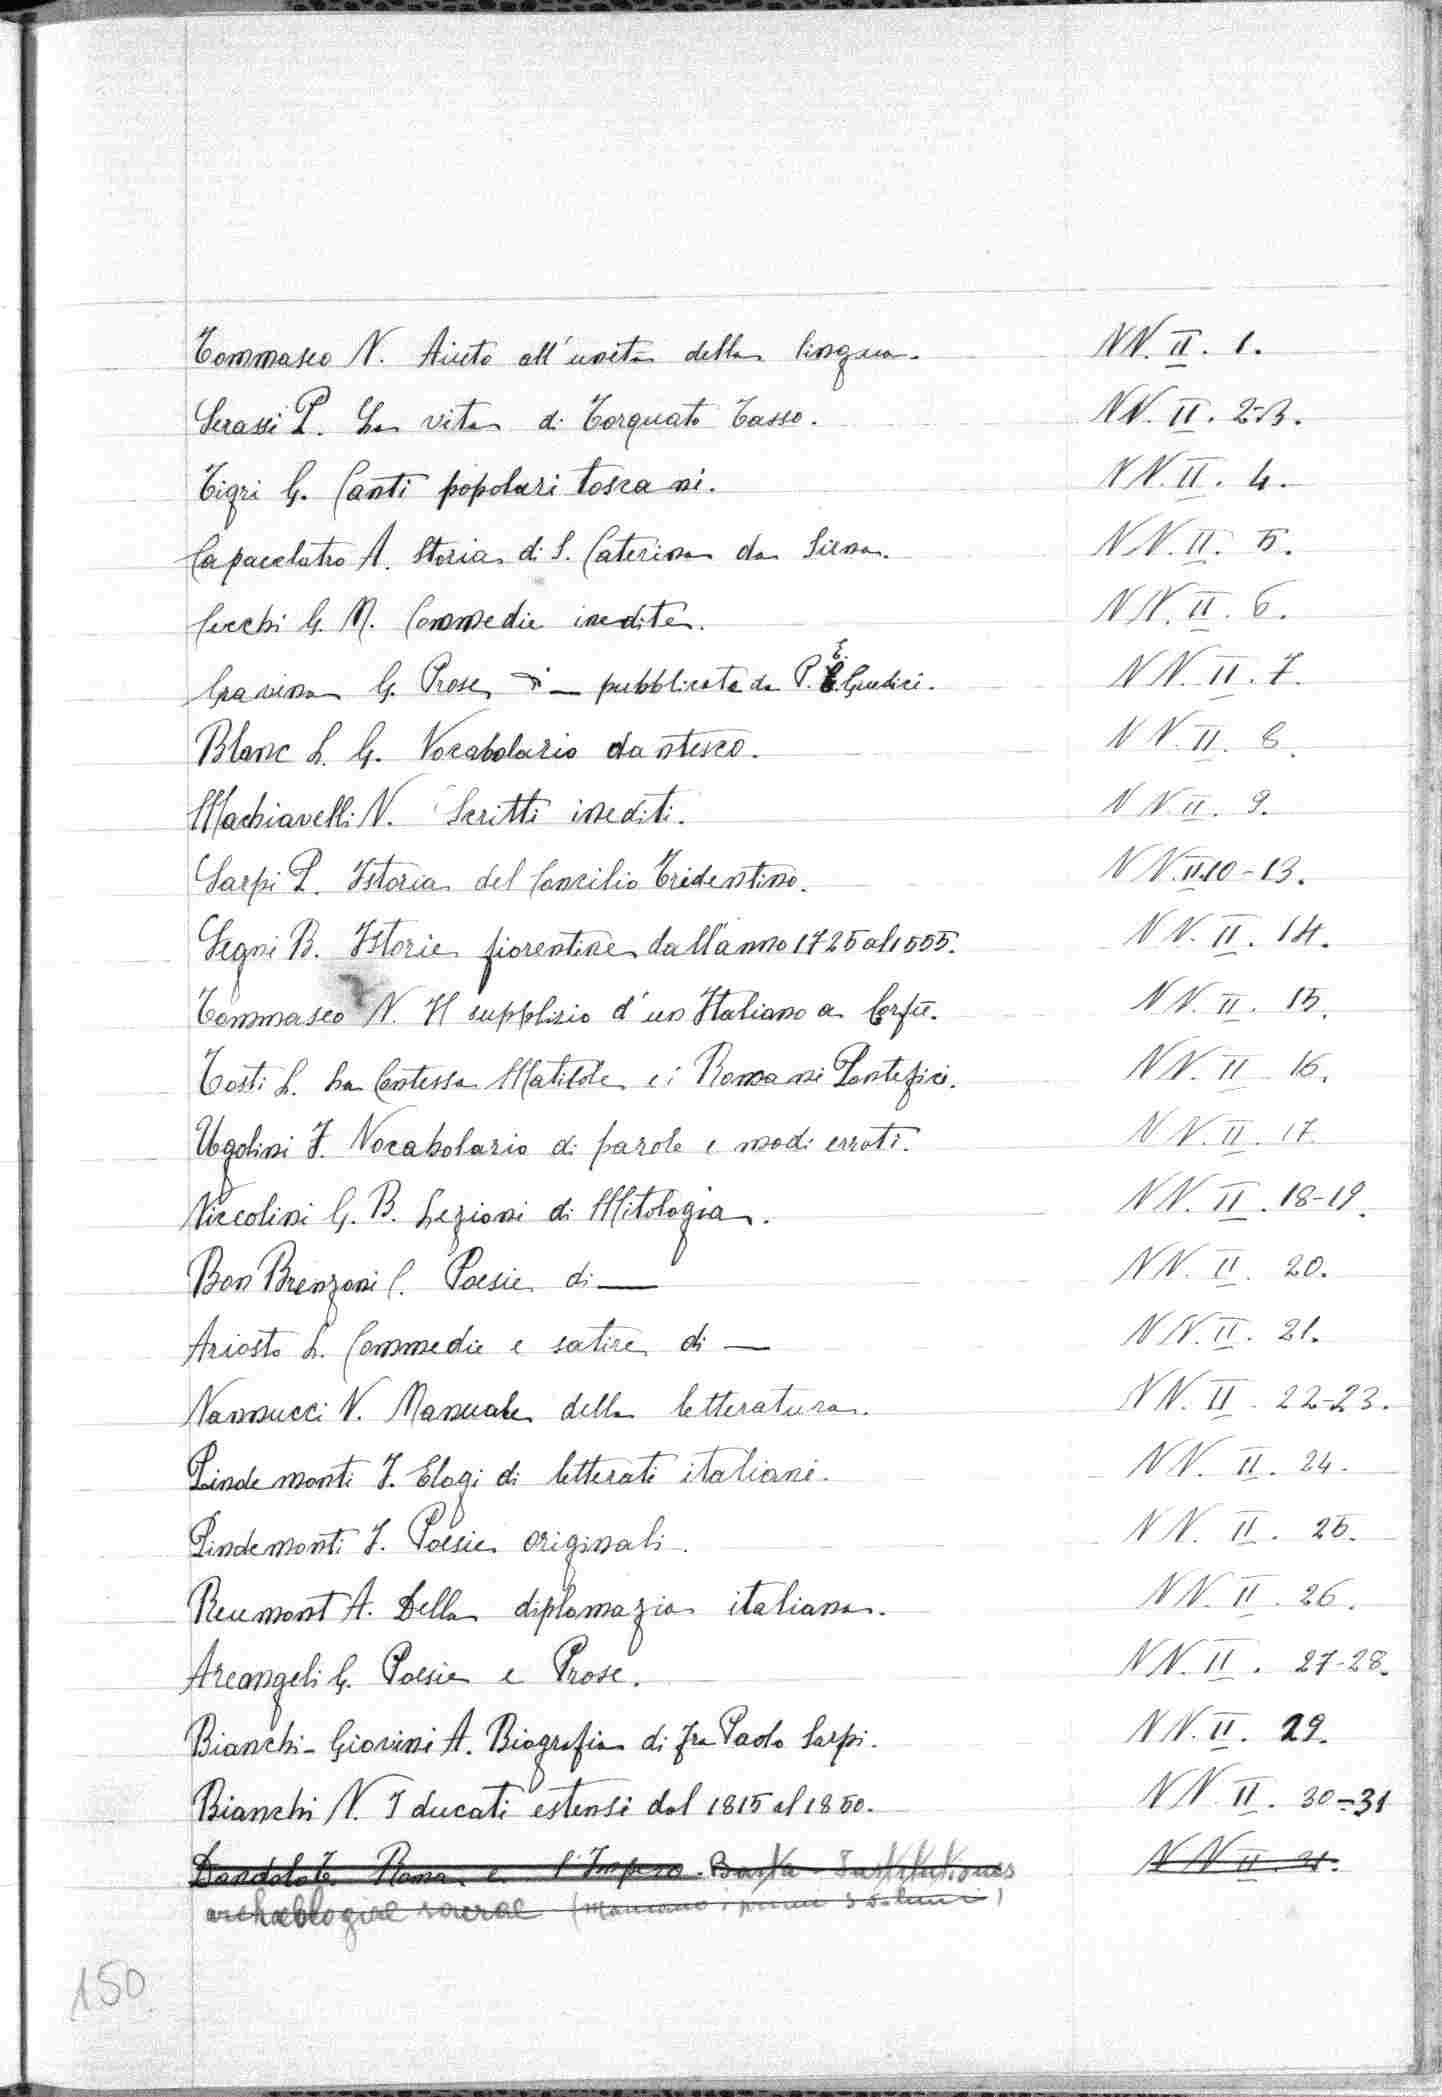 Tommaseo N. Aiuto all'unità della lingua. NN. II. 1.
Serassi P. La vita di Torquato Tasso. NN. II. 2-3.
Tigri G. Canti popolari toscani. NN. II. 4.
Capecelatro A. Storia di S. Caterina da Siena. NN. II. 5.
Cecchi G. M. Commedie inedite. NN. II. 6.
Gravina G. Prose di — pubblicate da P. E. Giudici. NN. II. 7.
Blanc L. G. Vocabolario dantesco. NN. II. 8.
Machiavelli N. Scritti inediti. NN. II. 9.
Sarpi P. Istoria del Concilio Tridentino. NN. II. 10-13.
Segni B. Istorie fiorentine dall'anno 1725 al 1555. NN. II. 14.
Tommaseo N. Il supplizio d'un Italiano a Corfù. NN. II. 15.
Tosti L. La Contessa Matilde e i Romani Pontefici. NN. II 16.
Ugolini F. Vocabolario di parole e modi errati. NN. II. 17.
Niccolini G. B. Lezioni di Mitologia. NN. II. 18-19.
Bon Brenzoni C. Poesie di — NN. II. 20.
Ariosto L. Commedie e satire di — NN. II. 21.
Nannucci V. Manuale della letteratura. NN. II. 22-23.
Pindemonti I. Elogi di letterati italiani. NN. II. 24.
Pindemonti I. Poesie originali. NN. II. 25.
Reumont A. Della diplomazia italiana. NN. II. 26.
Arcangeli G. Poesie e Prose. NN. II. 27-28.
Bianchi-Giovini A. Biografia di Fra Paolo Sarpi. NN. II. 29.
Bianchi N. I ducati estensi dal 1815 al 1850. NN. II. 30-31
Dandolo T. Roma e l'Impero. Institutiones NN II. 31.
archæologiae sacrae (mancano i primi 3 volumi)
150